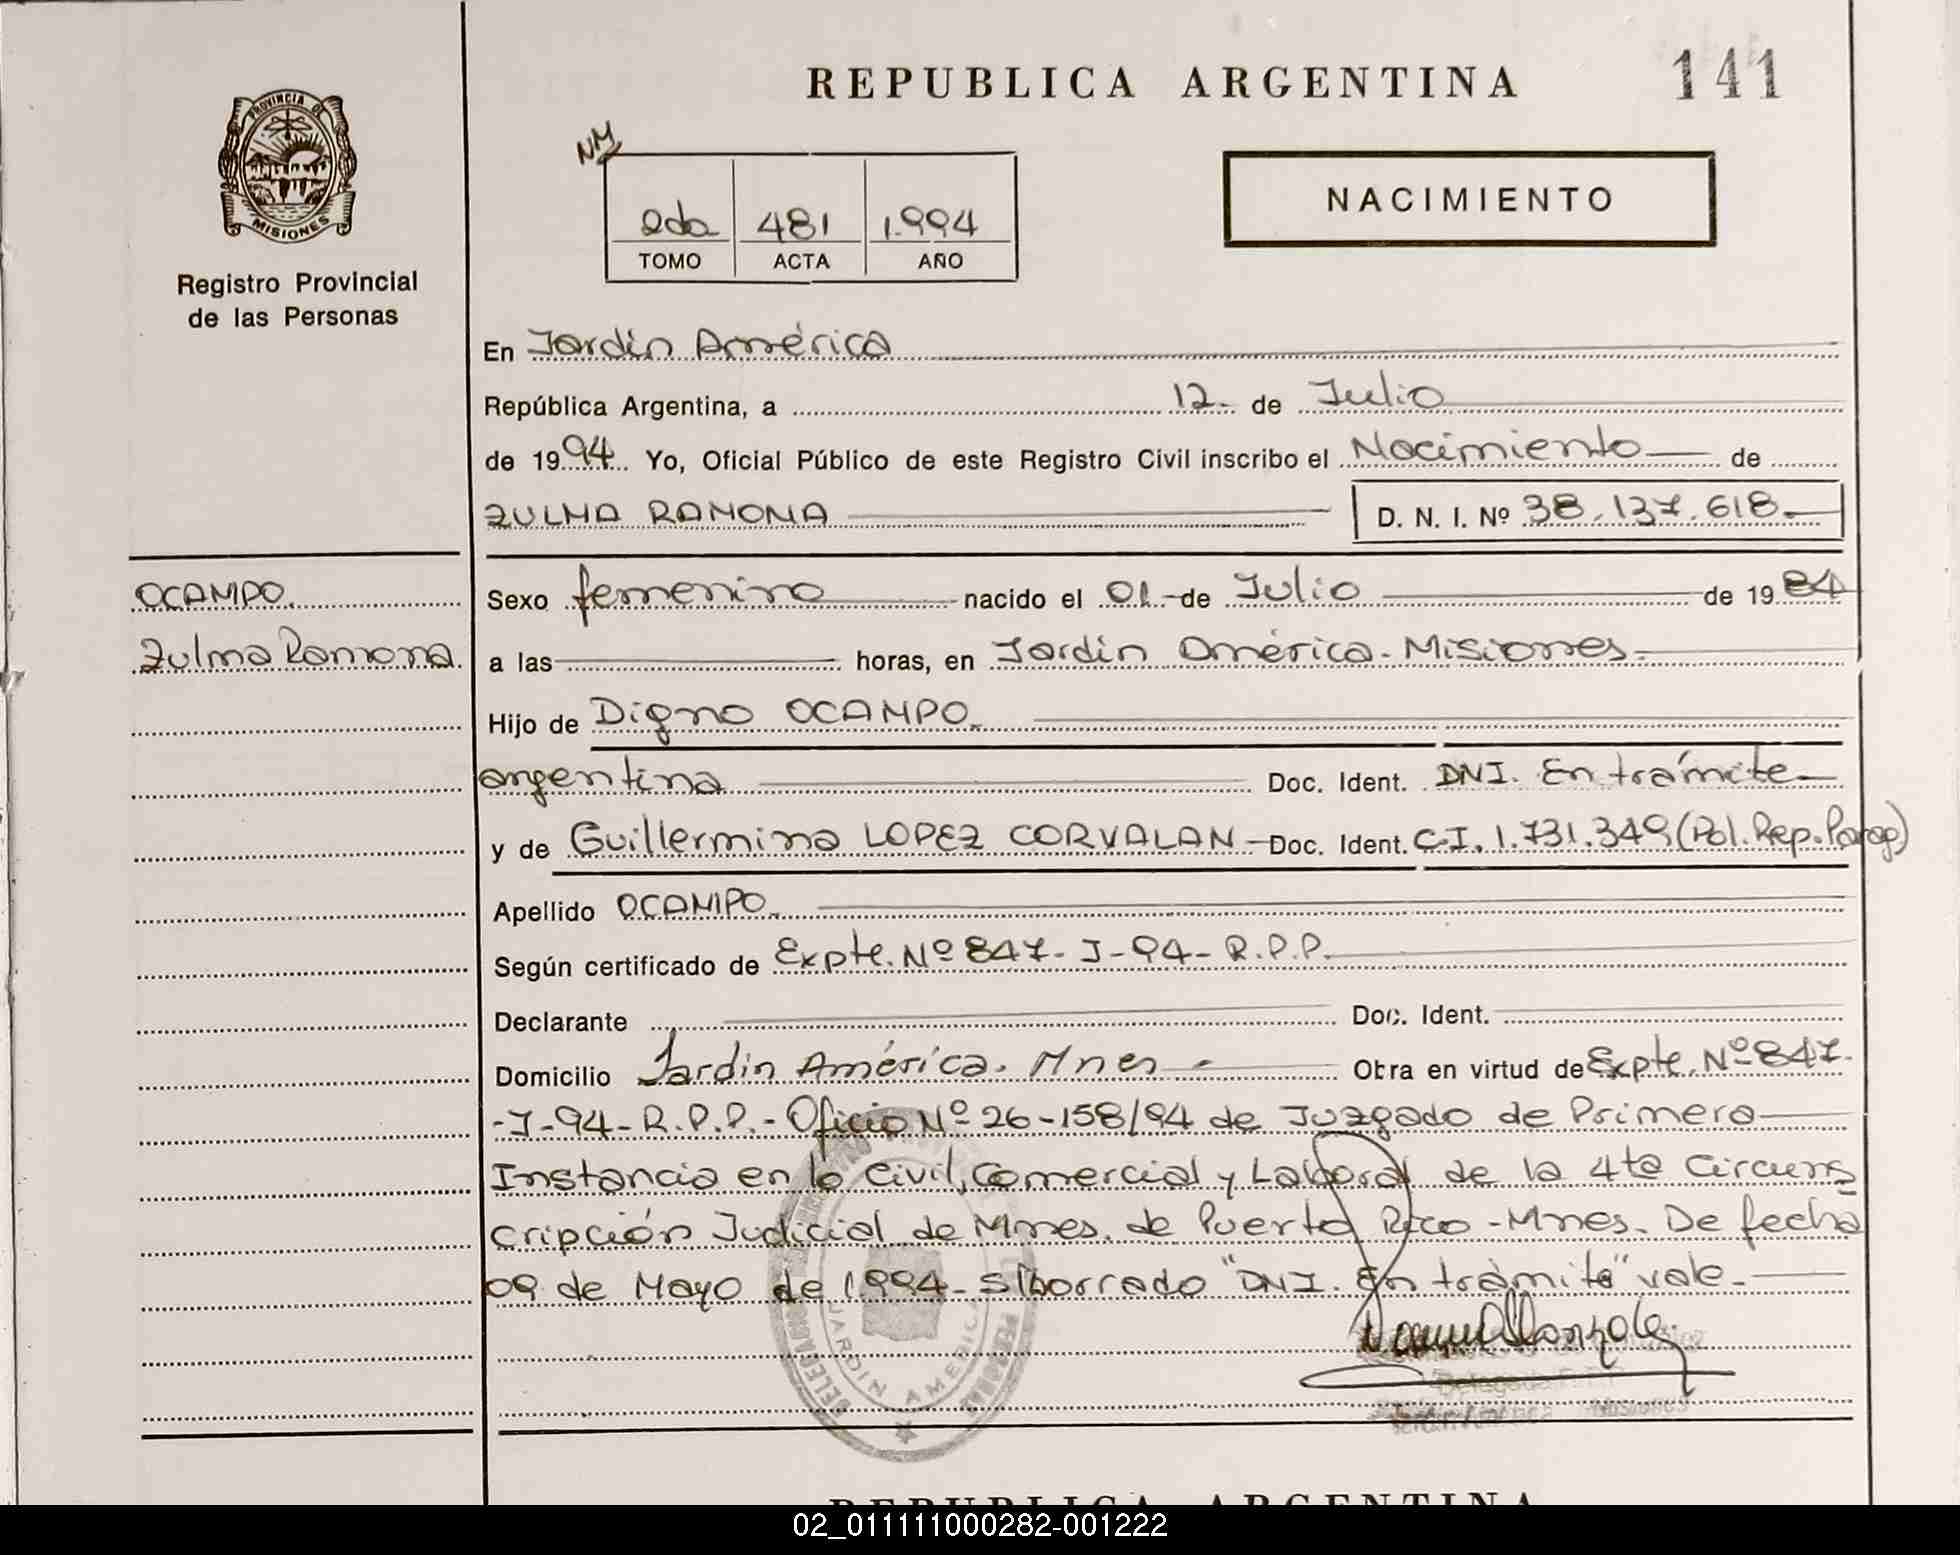 REPUBLICA ARGENTINA
141
PROVINCIA DE
MISIONES
Registro Provincial
de las Personas
NM
2do 481 1.994
TOMO ACTA AÑO
NACIMIENTO
En Jardín América
República Argentina, a 12 de Julio
de 1994. Yo, Oficial Público de este Registro Civil inscribo el Nacimiento de
ZULMA RAMONA D. N. I. Nº 38.137.618.-
OCAMPO.
Zulma Ramona.
Sexo femenino nacido el 01 de Julio de 1984
a las horas, en Jardín América - Misiones.
Hijo de Digno OCAMPO.
argentina Doc. Ident. DNI. En trámite
y de Guillermina LOPEZ CORVALAN - Doc. Ident. C.I. 1.731.349 (Pol. Rep. Parag)
Apellido OCAMPO.
Según certificado de Expte. Nº 847-J-94-R.P.P.
Declarante Doc. Ident.
Domicilio Jardín América. Mnes - Obra en virtud de Expte. Nº 847.
-J-94-R.P.P.- Oficio Nº 26-158/94 de Juzgado de Primera
Instancia en lo Civil, Comercial y Laboral de la 4ta Circuns
cripción Judicial de Mnes. de Puerto Rico - Mnes. De fecha
09 de Mayo de 1.994 - S/borrado "DNI. En trámite" vale.-
JARDIN AMERICA
REPUBLICA ARGENTINA
02_011111000282-001222